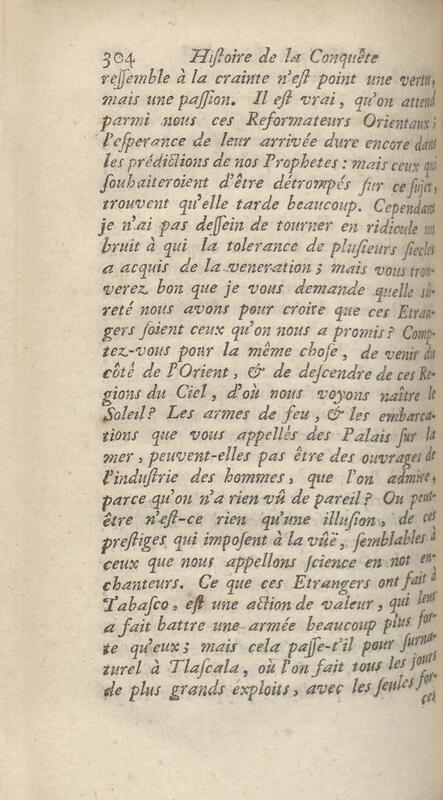 304 Histoire de la Conquête
ressemble à la crainte n'est point une vertu,
mais une passion. Il est vrai, qu'on attend
parmi nous ces Reformateurs Orientaux;
l'esperance de leur arrivée dure encore dans
les prédictions de nos Prophetes: mais ceux qui
souhaiteroient d'être détrompés sur ce sujet,
trouvent qu'elle tarde beaucoup. Cependant
je n'ai pas dessein de tourner en ridicule un
bruit à qui la tolerance de plusieurs siecles
a acquis de la veneration; mais vous trou-
verez bon que je vous demande quelle sû-
reté nous avons pour croire que ces Etran-
gers soient ceux qu'on nous a promis? Comp-
tez-vous pour la même chose, de venir du
côté de l'Orient, & de descendre de ces Re-
gions du Ciel, d'où nous voyons naître le
Soleil? Les armes de feu, & les embarca-
tions que vous appellés des Palais sur la
mer, peuvent-elles pas être des ouvrages de
l'industrie des hommes, que l'on admire,
parce qu'on n'a rien vû de pareil? Ou peut-
être n'est-ce rien qu'une illusion, de ces
prestiges qui imposent à la vûë, semblables à
ceux que nous appellons science en not en-
chanteurs. Ce que ces Etrangers ont fait à
Tabasco, est une action de valeur, qui leur
a fait battre une armée beaucoup plus for-
te qu'eux; mais cela passe-t'il pour surna-
turel à Tlascala, où l'on fait tous les jours
de plus grands exploits, avec les seules for-
ces